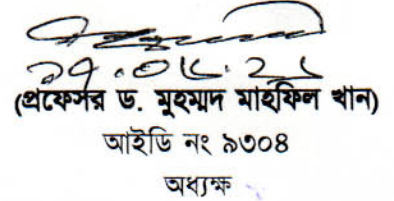 (প্রফেসর ড. মুহম্মদ মাহফিল খান)
আইডি নং ৯৩০৪
অধ্যক্ষ